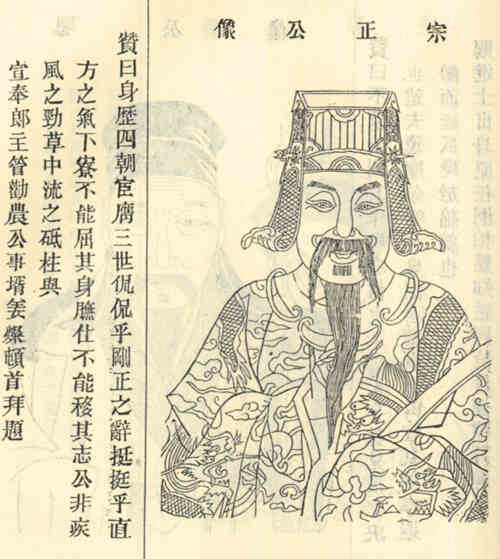 宗正公像
贊曰身歷四朝宦膺三世侃侃乎剛正之辭挺挺乎直
方之氣下寮不能屈其身膴仕不能移其志公非疾
風之勁草中流之砥柱與
宣奉郎主管勸農公事壻姜燦頓首拜題